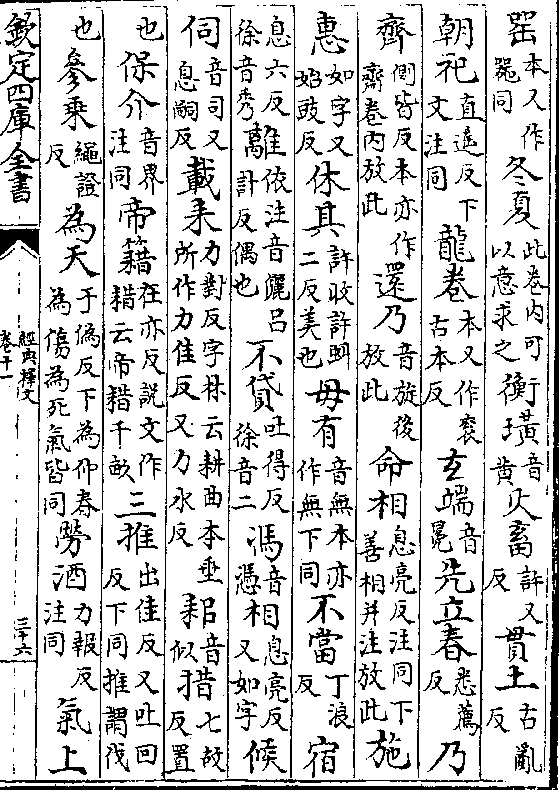 噐本又作器同冬夏此卷内可以意求之衡璜音黄火畜許又反貫土古亂反
朝祀直遥反下文注同龍卷本又作衮古本反玄端音冕先立春悉薦反乃
齊側皆反本亦作齋卷内放此還乃音旋後放此命相息亮反注同下善相并注放此施
惠如字又始豉反休其許收許虯二反美也毋有音無本亦作無下同不當丁浪反宿
息六反徐音秀離依注音儷吕計反偶也不貸吐得反徐音二馮音憑相息亮反又如字候
伺音司又息嗣反載耒力對反字林云耕曲木垂所作力佳反又力水反耜音似措七故反置
也保介音界注同帝籍在亦反説文作耤云帝耤千畝三推出佳反又吐回反下同推謂伐
也參乘繩證反為天于偽反下為仰春為傷為死氣皆同勞酒力報反注同氣上
欽定四庫全書
經典釋文
卷十一
三十六